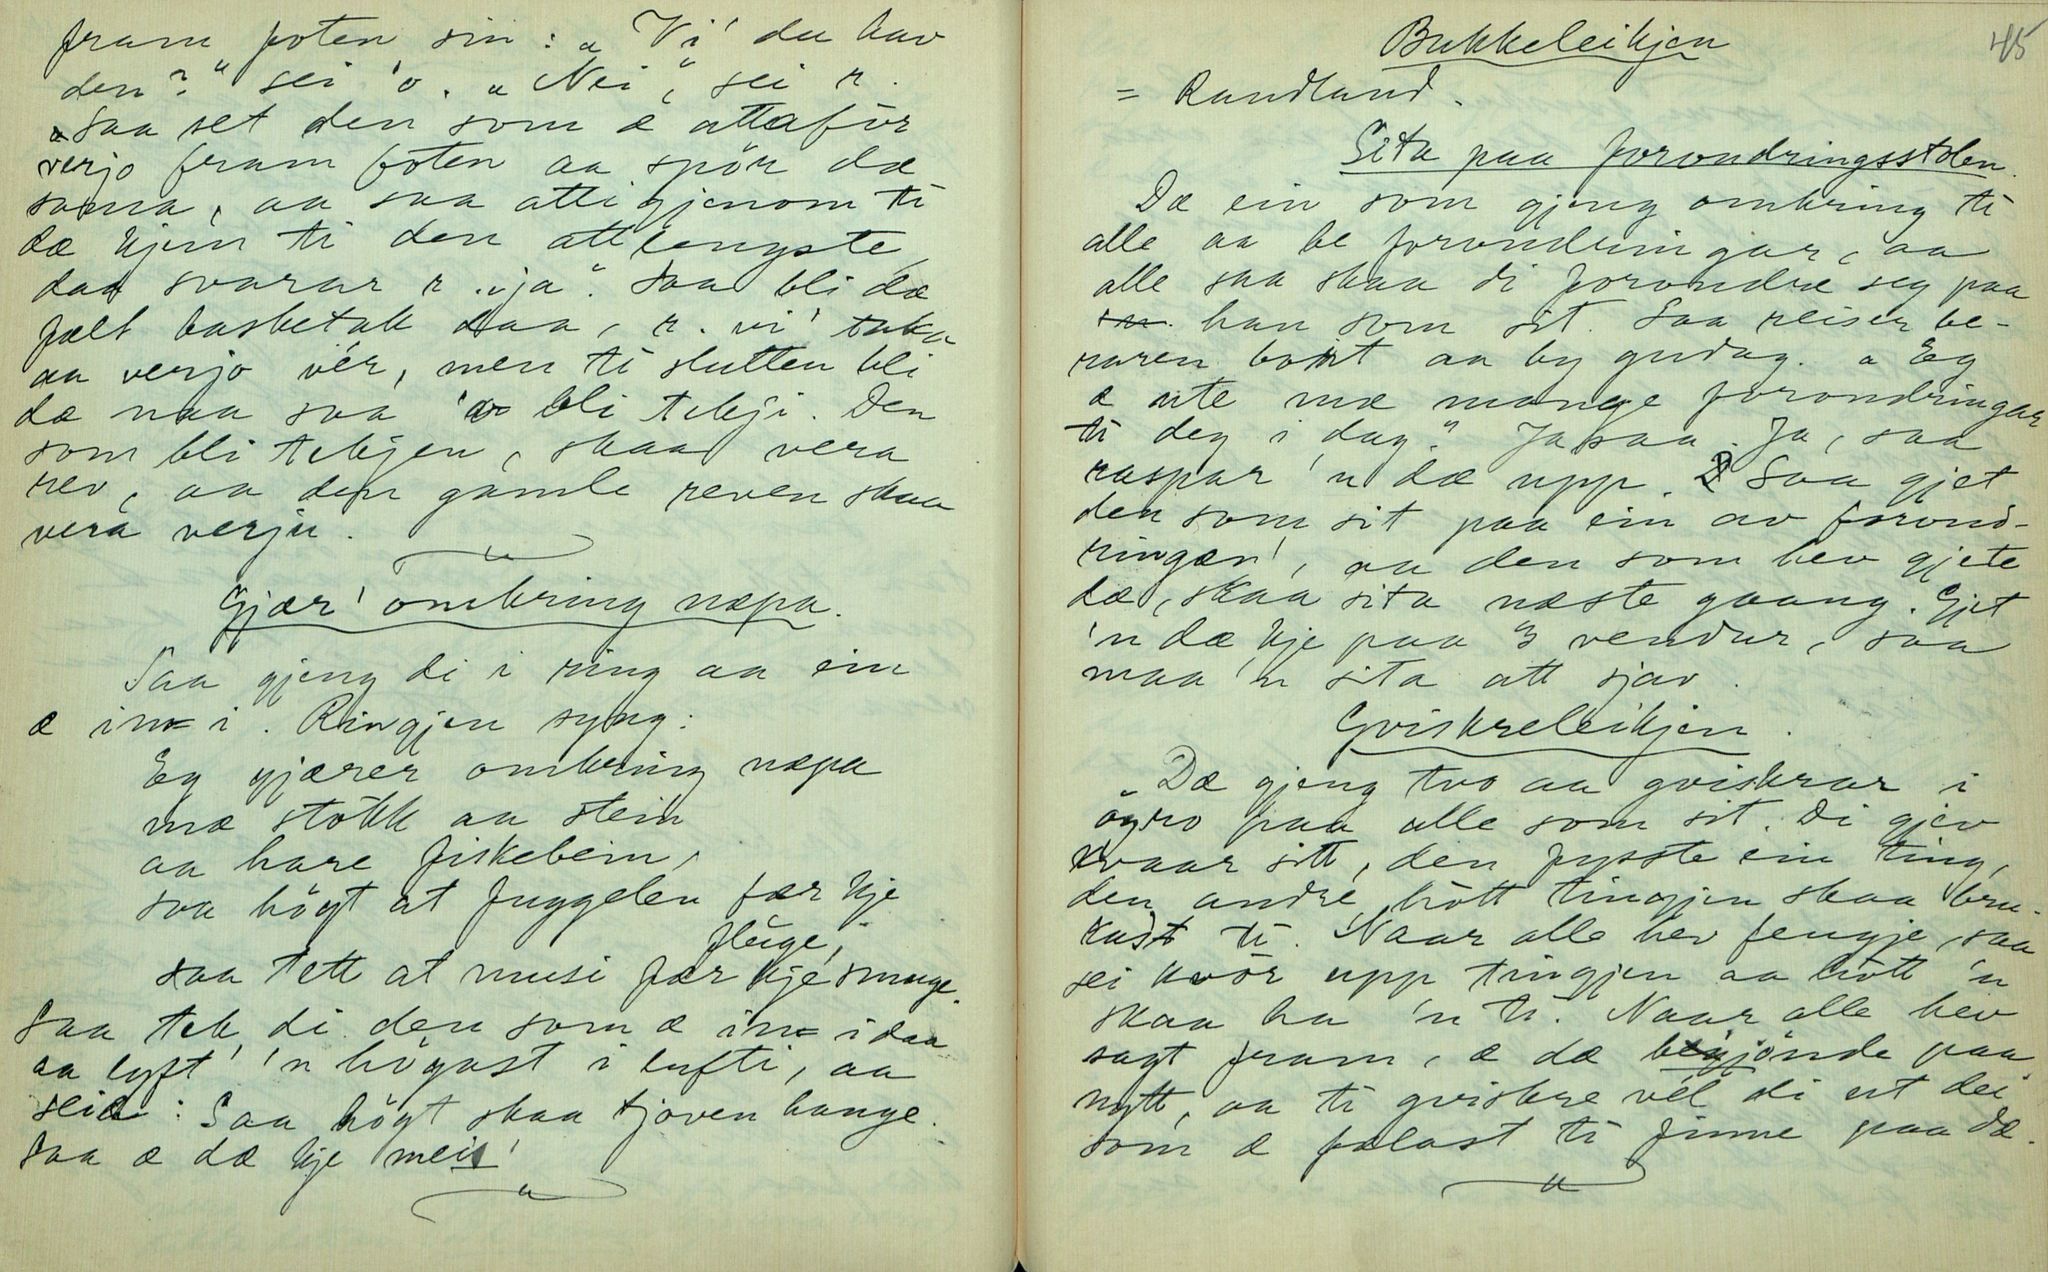 fram foten sin: „Vi' du hav
den?“ sei 'o. „Nei,“ sei n.
Saa set den som æ attaför
verjo fram foten aa spör dæ
sama, aa saa atti gjenom ti
dæ kjem ti den attlengste,
daa svarar n „ja“. Saa bli dæ
fælt basketak daa, r. vi' taka
aa verjo vér, men ti slutten bli
dæ naa saa 'o bli tekji. Den
som bli tekjen, skaa vera
rev, aa den gamle reven skaa
vera verju.
Gjær' ombring næpa.
Saa gjeng di i ring aa ein
æ inn i. Ringjen syng:
Eg gjærer ombring næpa
mæ stokk aa stein
aa hare fiskebein,
saa högt at fuggelen fær kje
fluge,
saa tett at musi fær kje smuge.
Saa tek di den som æ inn i daa
aa lyft' 'n högast i lufti, aa
seia: Saa högt skaa tjoven hange.
Saa æ dæ kje mei!
45
Bukkeleikjen
= Randland.
Sita paa forondringsstolen.
Dæ ein som gjeng ombring ti
alle aa be forondringar, aa
alle saa skaa di forondre seg paa
han som sit. Saa reiser be-
raren bort aa by gudag. „Eg
æ ute mæ mange forondringar
ti deg i dag.“ Jasaa. Ja, saa
raspar 'n dæ upp. Saa gjet
den som sit paa ein av forond-
ringan', aa den som hev gjete
dæ, skaa sita næste gaang. Gjet
'n dæ kje paa 3 vendur, saa
maa 'n sita att sjav.
Gviskreleikjen.
Dæ gjeng tvo aa gviskrar i
öyro paa alle som sit. Di gjev
kvaar sitt, den fysste ein ting,
den andre hött tingjen skaa bru-
kast ti. Naar alle hev fengje, saa
sei kvör upp tingjen aa hött 'n
skaa ha 'n ti. Naar alle hev
sagt fram, æ dæ begjönde paa
nytt, aa ti gviskre vél di ut dei
som æ falast ti finne paa dæ.